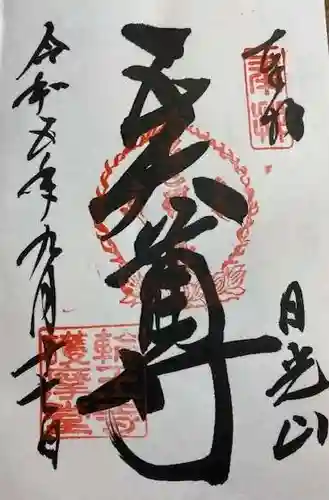 奉拝
日光山
五大尊
輪王寺
護摩堂
令和五年九月十七日